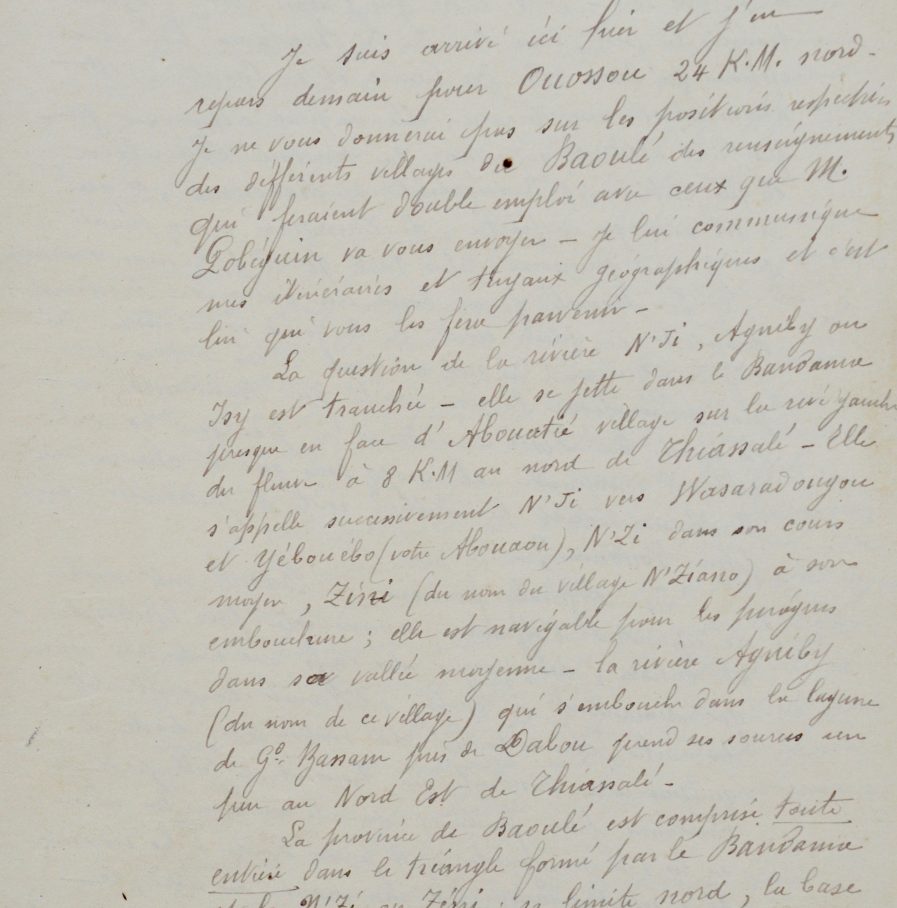 Je suis arrivé ici hier et j'en
repars demain pour Ouossou 24 K.M. nord-
Je ne vous donnerai pas sur les positions respectives
des différents villages du Baoulé des renseignements
qui feraient double emploi avec ceux que M.
Lobéguin va vous envoyer - je lui communique
mes itinéraires et travaux géographiques et c'est
lui qui vous les fera parvenir -
La question de la rivière N'Ji, Agniby ou
Isy est tranchée - elle se jette dans le Bandama
presque en face d'Abouatié village sur la rive gauche
du fleuve à 8 K.M au nord de Thiassalé - Elle
s'appelle successivement N'Ji vers Wasaradougou
et Yébouébo (votre Abouaou), N'Zi dans son cours
moyen, Zini (du nom du village N'Ziano) à son
embouchure ; elle est navigable pour les pirogues
dans sa vallée moyenne - la rivière Agniby
(du nom de ce village) qui s'embouche dans la lagune
de Gd. Bassam près de Dabou prend ses sources un
peu au Nord Est de Thiassalé -
La province de Baoulé est comprise toute
entière dans le triangle formé par le Bandama
et le N'Zi ou Zéni ; sa limite nord, la base